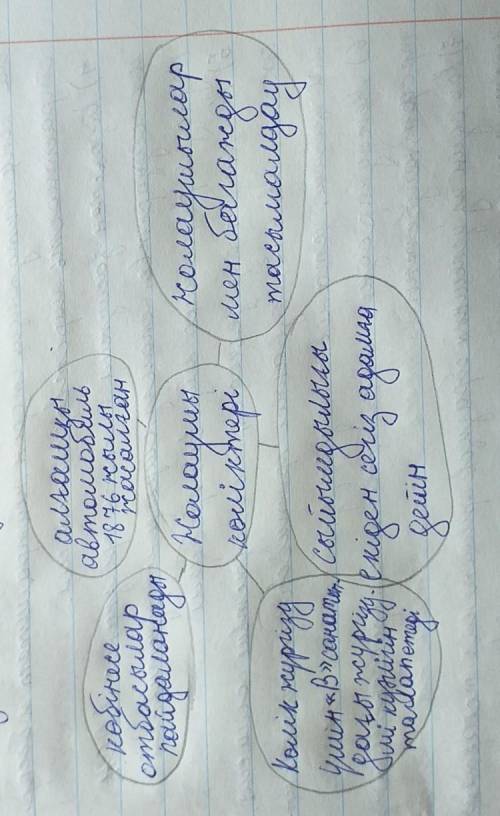 алғашқы
автомобиль
1876 жылы
жасалған
көбінесе
отбасылар
пайдаланады
Жолаушылар
мен
тасымалдау
Жолаушы
көліктері
Көлік жүргізу
үшін «В» санатын-
дағы жүргізу-
ші куәлігін
талап етеді
сыйымдылығы
екіден сегіз адамға
дейін